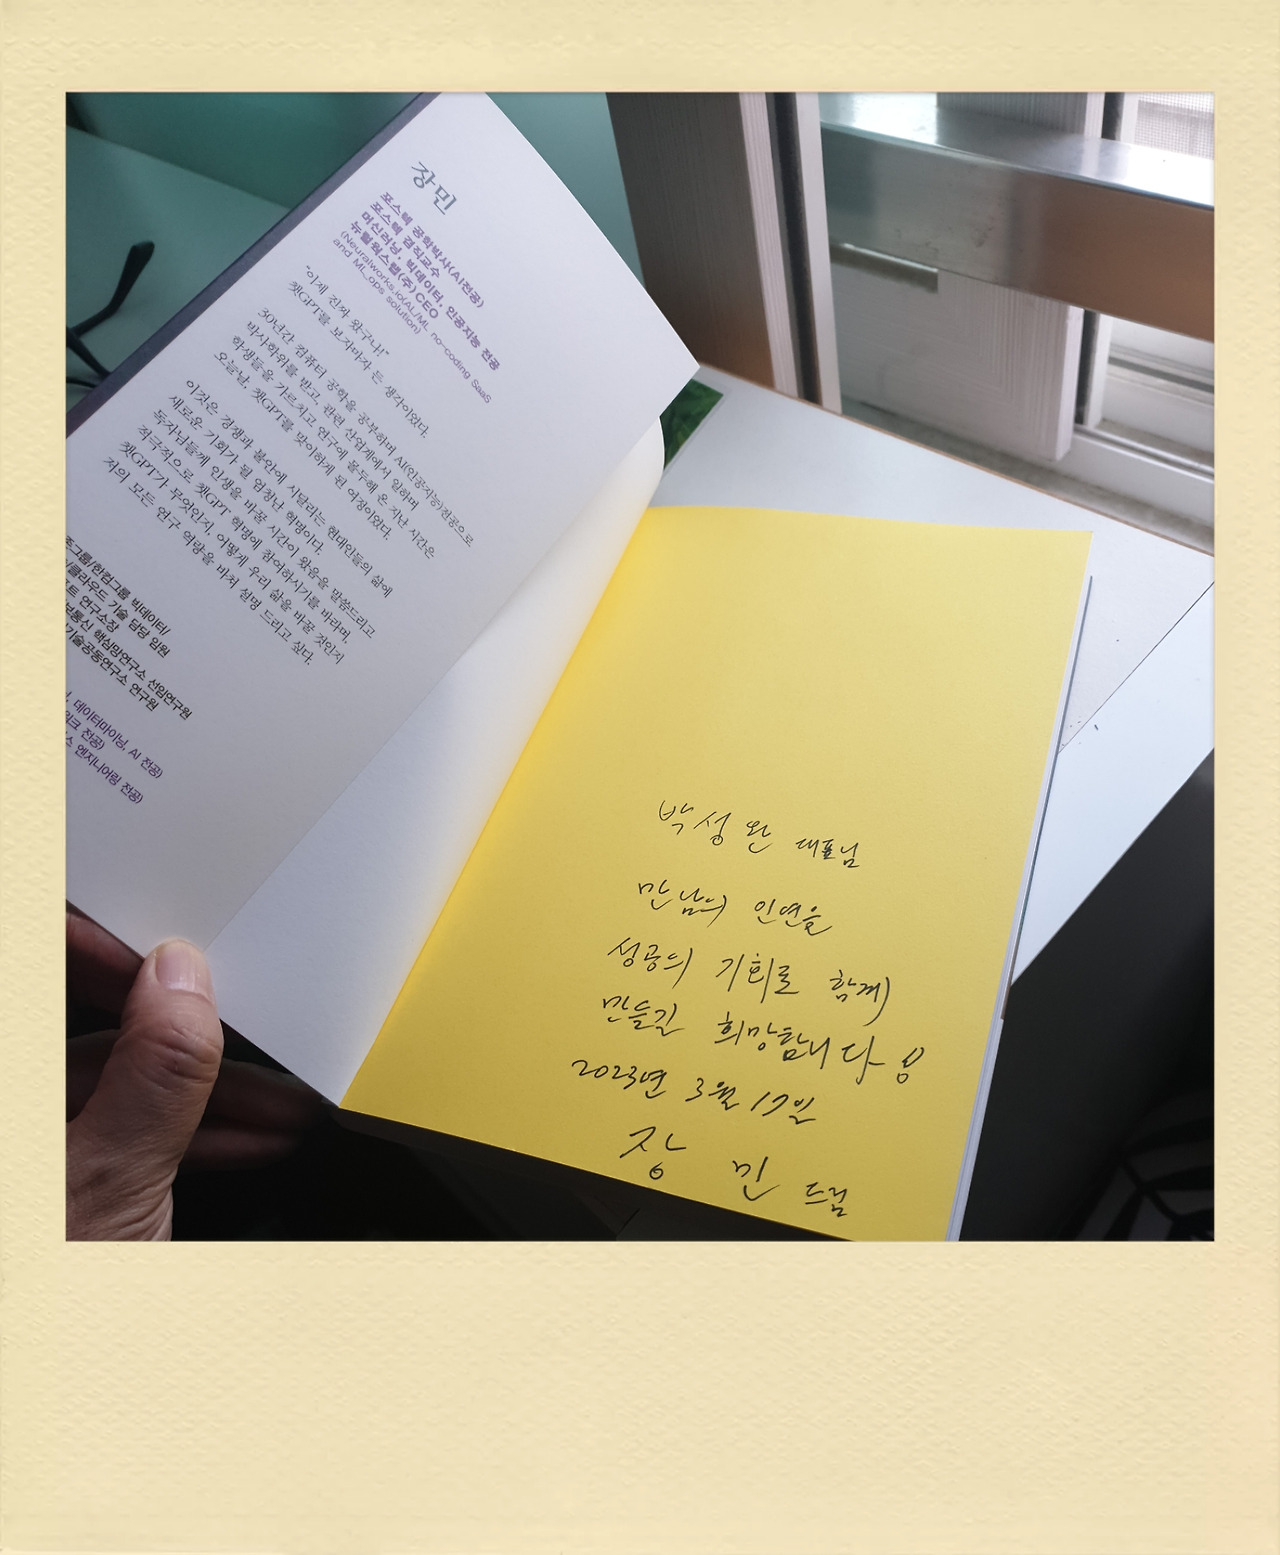 장민
포스텍 공학박사(AI전공)
포스텍 겸직교수
머신러닝, 빅데이터, 인공지능 전공
뉴럴웍스랩(주) CEO
(Neuralworks.io(AL/ML no-coding SaaS
and ML_ops solution)
"이제 진짜 왔구나!"
챗GPT를 보자마자 든 생각이었다.
30년간 컴퓨터 공학을 공부하며 AI(인공지능)전공으로
박사학위를 받고, 관련 산업계에서 일하며
학생들을 가르치고 연구에 몰두해 온 지난 시간은
오늘날, 챗GPT를 맞이하게 된 여정이었다.
이것은 경쟁과 불안에 시달리는 현대인들의 삶에
새로운 기회가 될 엄청난 혁명이다.
독자님들께 인생을 바꿀 시간이 왔음을 말씀드리고
적극적으로 챗GPT 혁명에 참여하시기를 바라며,
챗GPT가 무엇인지, 어떻게 우리 삶을 바꿀 것인지
저의 모든 연구 역량을 바쳐 설명 드리고 싶다.
그룹/한컴그룹 빅데이터/
/클라우드 기술 담당 임원
연구소장
보통신 핵심망연구소 선임연구원
기술공동연구소 연구원
, 데이터마이닝, AI 전공)
워크 전공)
스 엔지니어링 전공)
박성완 대표님
만남의 인연을
성공의 기회로 함께
만들길 희망합니다!
2023년 3월 17일
장 민 드림